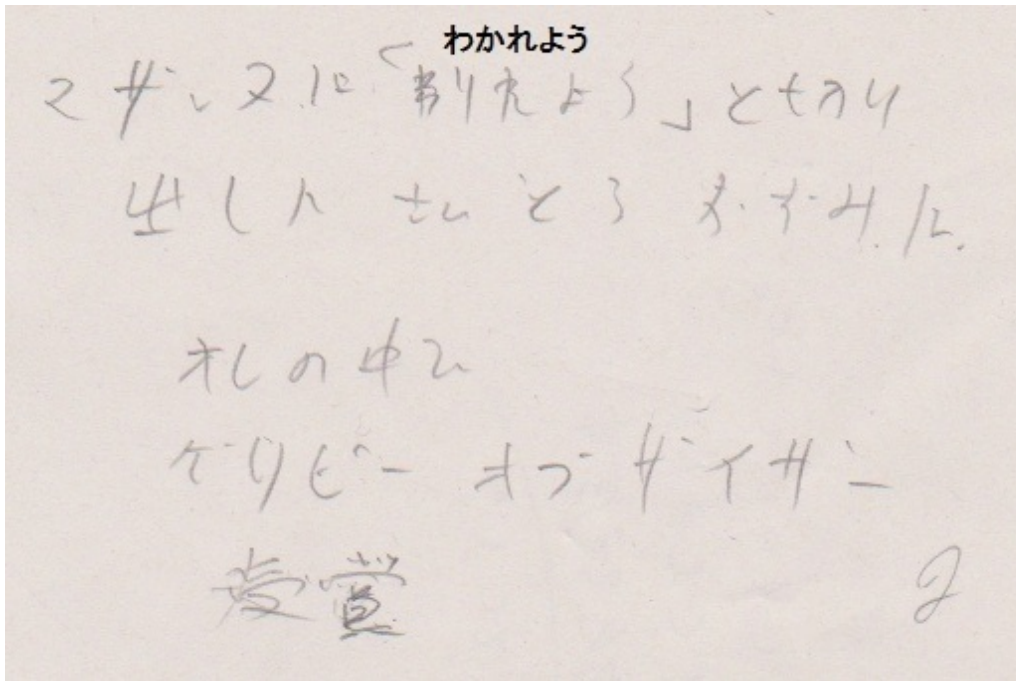 わかれよう
マザンヌに「別れよう」と切り
出したさいとうおずみに
オレの中で
ゲリビー オブ ザイザー
受賞
2